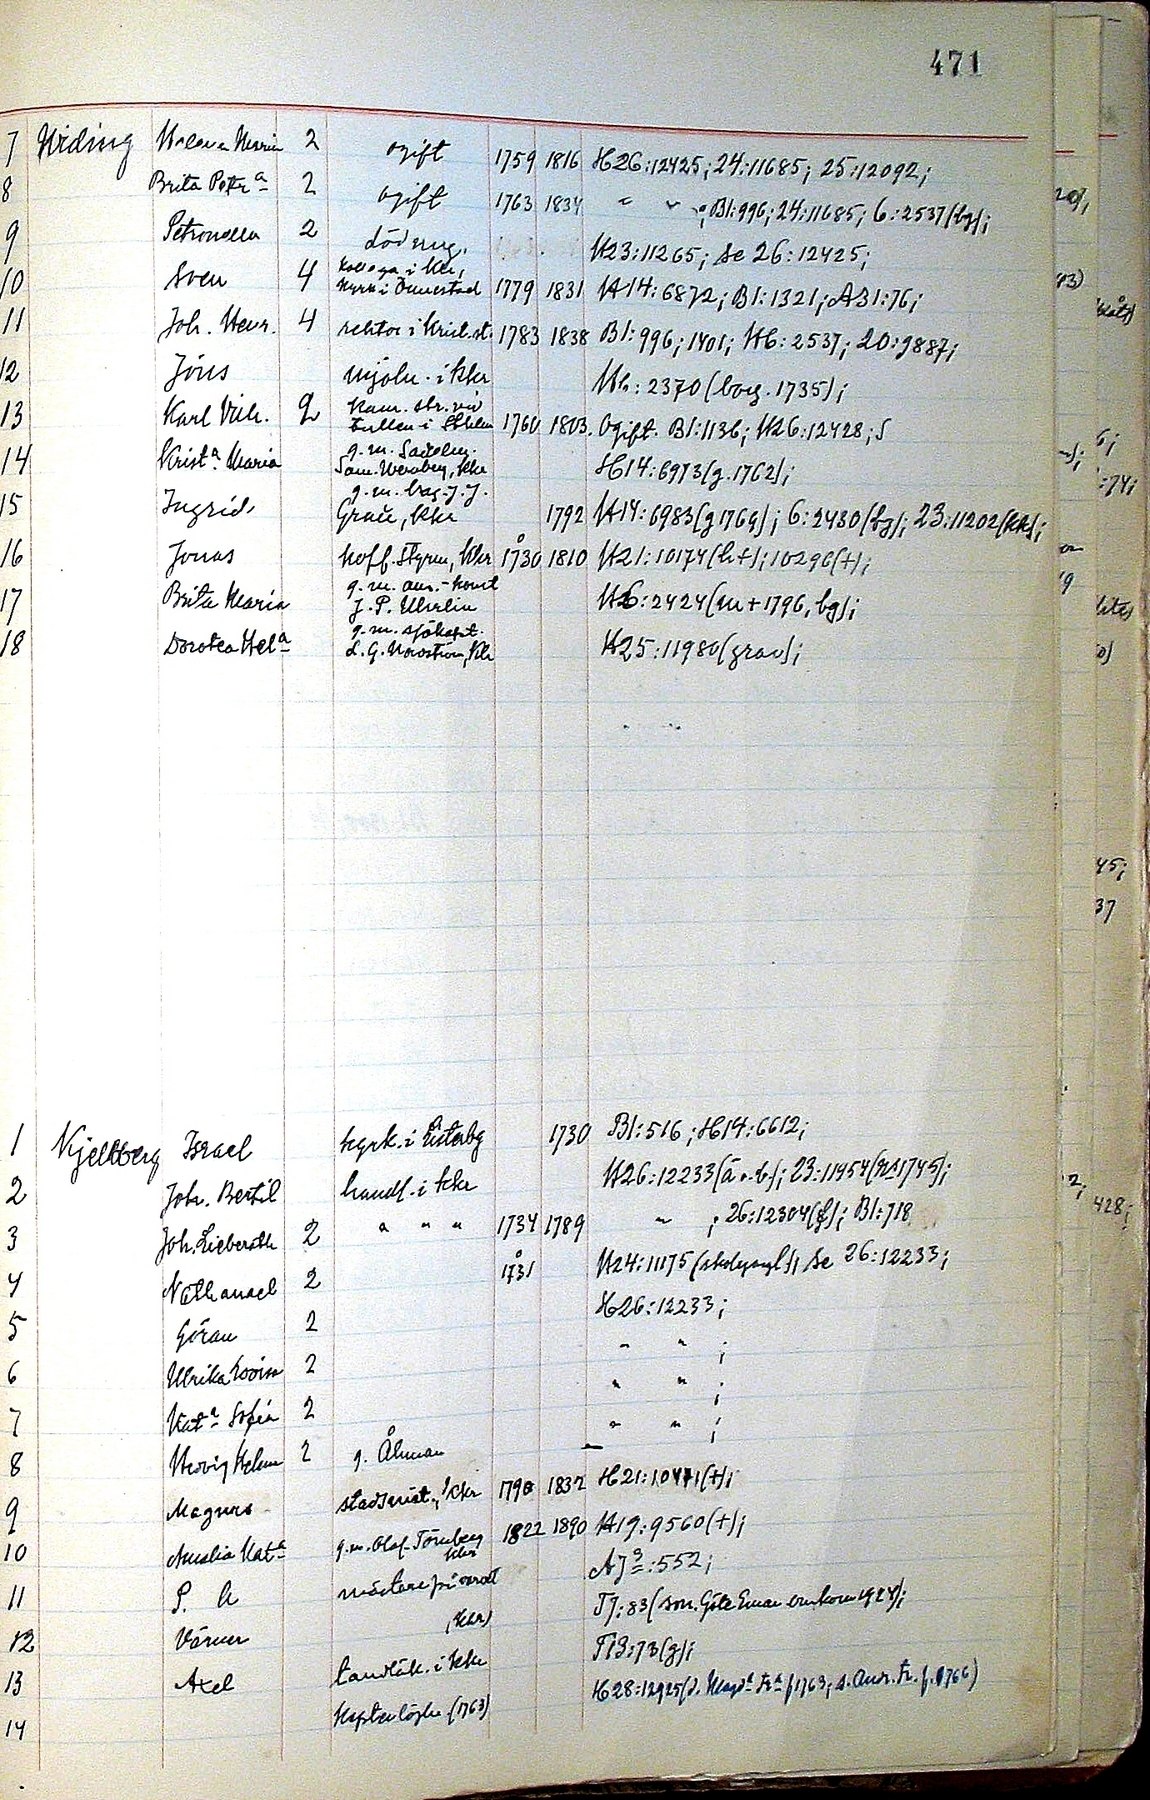 471
7 Widing Helena Maria 2 ogift 1759 1816 H26:12425; 24:11685; 25:12092;
8 Brita Petra 2 ogift 1763 1834 " " ; B1:996; 24:11685; 6:2537(bg);
9 Petronella 2 död ung. H23:11265; se 26:12425;
10 Sven 4 kollega i kkr, kyrkh i Önnestad 1779 1831 H14:6872; B1:1321; AB1:76;
11 Joh. Henr. 4 rektor i Krist.st. 1783 1838 B1:996; 1401; H6:2537; 20:9887;
12 Jöns mjöln. i kkr H6:2370 (borg. 1735);
13 Karl Vilh. 2 kam. skr. vid tullen i Sthlm 1760 1803. Ogift. B1:1136; H26:12428; S
14 Krista Maria g.m. Sadelm. Sam. Wernberg, kkr H14:6973(g.1762);
15 Ingrid g.m. brag. J.J. Grace, kkr 1792 H14:6983(g 1769); 6:2430(bg); 23:11202(kk);
16 Jonas hoff. styrm, kkr å 1730 1810 H21:10174(h+); 10296(+);
17 Brita Maria g.m. am.-konst J. P. Uhrlin H6:2424(m + 1796, bg);
18 Dorotea Hela g.m. sjökapt. L. G. Norström, kkr H25:11980(grav);
1 Kjellberg Israel kyrk. i Listerby 1730 B1:516; H14:6612;
2 Joh. Bertil handl. i kkr H26:12233(ä.o.b); 23:11954(1745);
3 Joh. Lieberath 2 " " " 1734 1789 " ; 26:12304(f); B1:718
4 Nathanael 2 å 1731 H24:11175 se 26:12233;
5 Göran 2 H26:12233;
6 Ulrika Lovisa 2 " " ;
7 Kata Sofia 2 " " ;
8 Hedvig Helena 2 g. Åhman " " ;
9 Magnus stadsmät., kkr 1790 1832 H21:10471(+);
10 Amalia Kata g.m. Olof Törnberg kkr 1822 1890 H19:9560(+);
11 P. A mästare på varvet (kkr) AJ3:552;
12 Värner TJ:83 (son. Göte Emar omkom 1924);
13 Axel tandläk. i kkr T13:73(g);
14 (1763) H28:12925(d. Magda Fra f 1763; s. Andr. Fr. f. 1766)